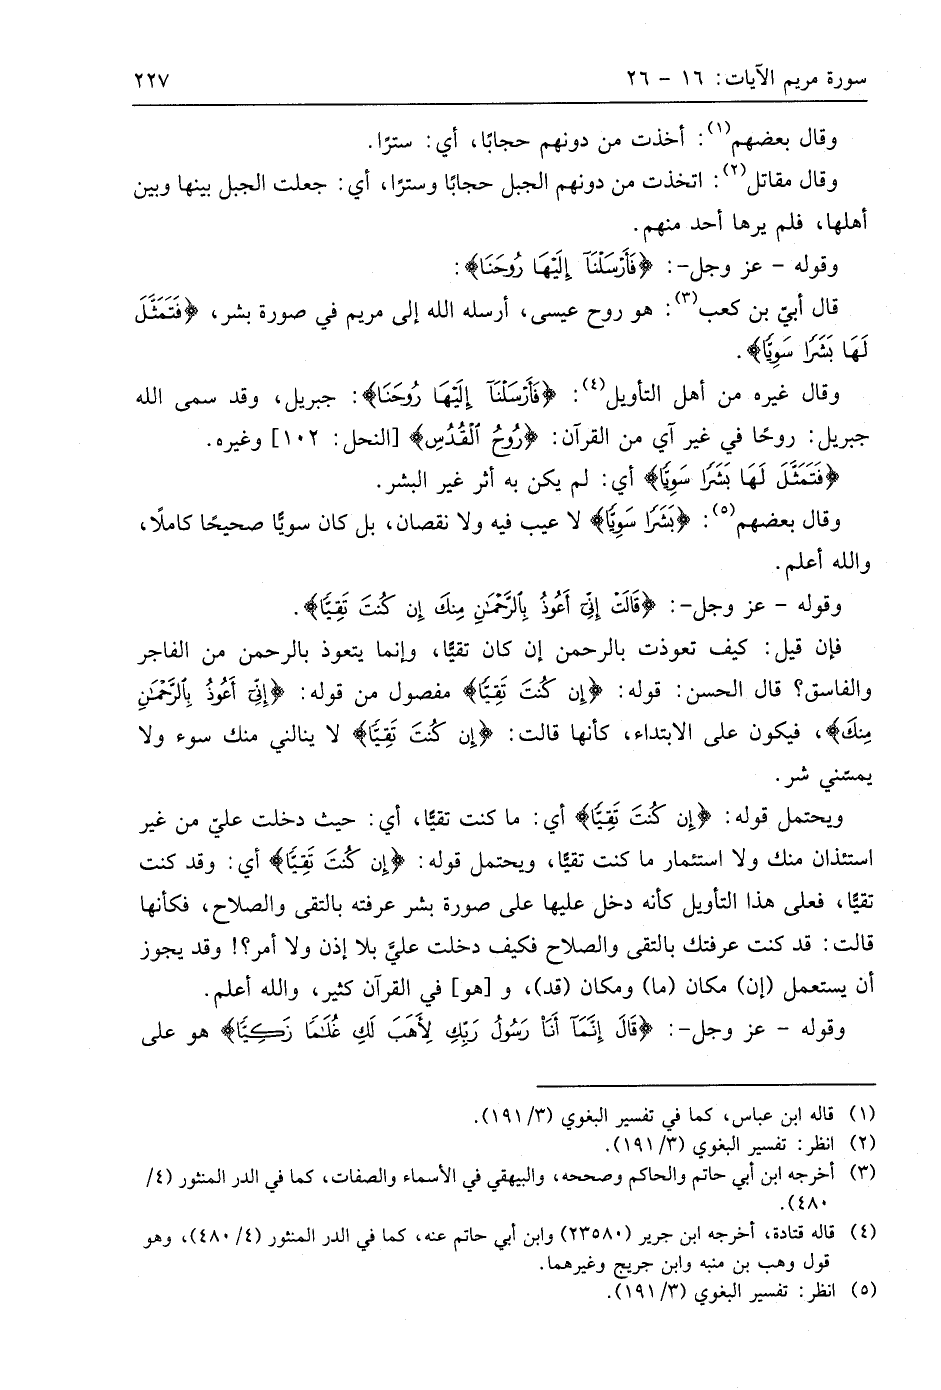 سورة مريم الآيات: ١٦ - ٢٦ ٢٢٧
وقال بعضهم(١): أخذت من دونهم حجابًا، أي: سترًا.
وقال مقاتل(٢): اتخذت من دونهم الجبل حجابًا وسترًا، أي: جعلت الجبل بينها وبين
أهلها، فلم يرها أحد منهم.
وقوله - عز وجل-: ﴿فَأَرْسَلْنَآ إِلَيْهَا رُوحَنَا﴾:
قال أبيّ بن كعب(٣): هو روح عيسى، أرسله الله إلى مريم في صورة بشر، ﴿فَتَمَثَّلَ
لَهَا بَشَرًا سَوِيًّا﴾.
وقال غيره من أهل التأويل(٤): ﴿فَأَرْسَلْنَآ إِلَيْهَا رُوحَنَا﴾: جبريل، وقد سمى الله
جبريل: روحًا في غير آي من القرآن: ﴿رُوحُ ٱلْقُدُسِ﴾ [النحل: ١٠٢] وغيره.
﴿فَتَمَثَّلَ لَهَا بَشَرًا سَوِيًّا﴾ أي: لم يكن به أثر غير البشر.
وقال بعضهم(٥): ﴿بَشَرًا سَوِيًّا﴾ لا عيب فيه ولا نقصان، بل كان سويًّا صحيحًا كاملًا،
والله أعلم.
وقوله - عز وجل-: ﴿قَالَتْ إِنِّىٓ أَعُوذُ بِٱلرَّحْمَٰنِ مِنكَ إِن كُنتَ تَقِيًّا﴾.
فإن قيل: كيف تعوذت بالرحمن إن كان تقيًّا، وإنما يتعوذ بالرحمن من الفاجر
والفاسق؟ قال الحسن: قوله: ﴿إِن كُنتَ تَقِيًّا﴾ مفصول من قوله: ﴿إِنِّىٓ أَعُوذُ بِٱلرَّحْمَٰنِ
مِنكَ﴾، فيكون على الابتداء، كأنها قالت: ﴿إِن كُنتَ تَقِيًّا﴾ لا ينالني منك سوء ولا
يمسّني شر.
ويحتمل قوله: ﴿إِن كُنتَ تَقِيًّا﴾ أي: ما كنت تقيًّا، أي: حيث دخلت عليّ من غير
استئذان منك ولا استثمار ما كنت تقيًّا، ويحتمل قوله: ﴿إِن كُنتَ تَقِيًّا﴾ أي: وقد كنت
تقيًّا، فعلى هذا التأويل كأنه دخل عليها على صورة بشر عرفته بالتقى والصلاح، فكأنها
قالت: قد كنت عرفتك بالتقى والصلاح فكيف دخلت عليَّ بلا إذن ولا أمر؟! وقد يجوز
أن يستعمل (إن) مكان (ما) ومكان (قد)، و [هو] في القرآن كثير، والله أعلم.
وقوله - عز وجل-: ﴿قَالَ إِنَّمَآ أَنَا۠ رَسُولُ رَبِّكِ لِأَهَبَ لَكِ غُلَٰمًا زَكِيًّا﴾ هو على
(١) قاله ابن عباس، كما في تفسير البغوي (٣/ ١٩١).
(٢) انظر: تفسير البغوي (٣/ ١٩١).
(٣) أخرجه ابن أبي حاتم والحاكم وصححه، والبيهقي في الأسماء والصفات، كما في الدر المنثور (٤/
٤٨٠).
(٤) قاله قتادة، أخرجه ابن جرير (٢٣٥٨٠) وابن أبي حاتم عنه، كما في الدر المنثور (٤/ ٤٨٠)، وهو
قول وهب بن منبه وابن جريج وغيرهما.
(٥) انظر: تفسير البغوي (٣/ ١٩١).